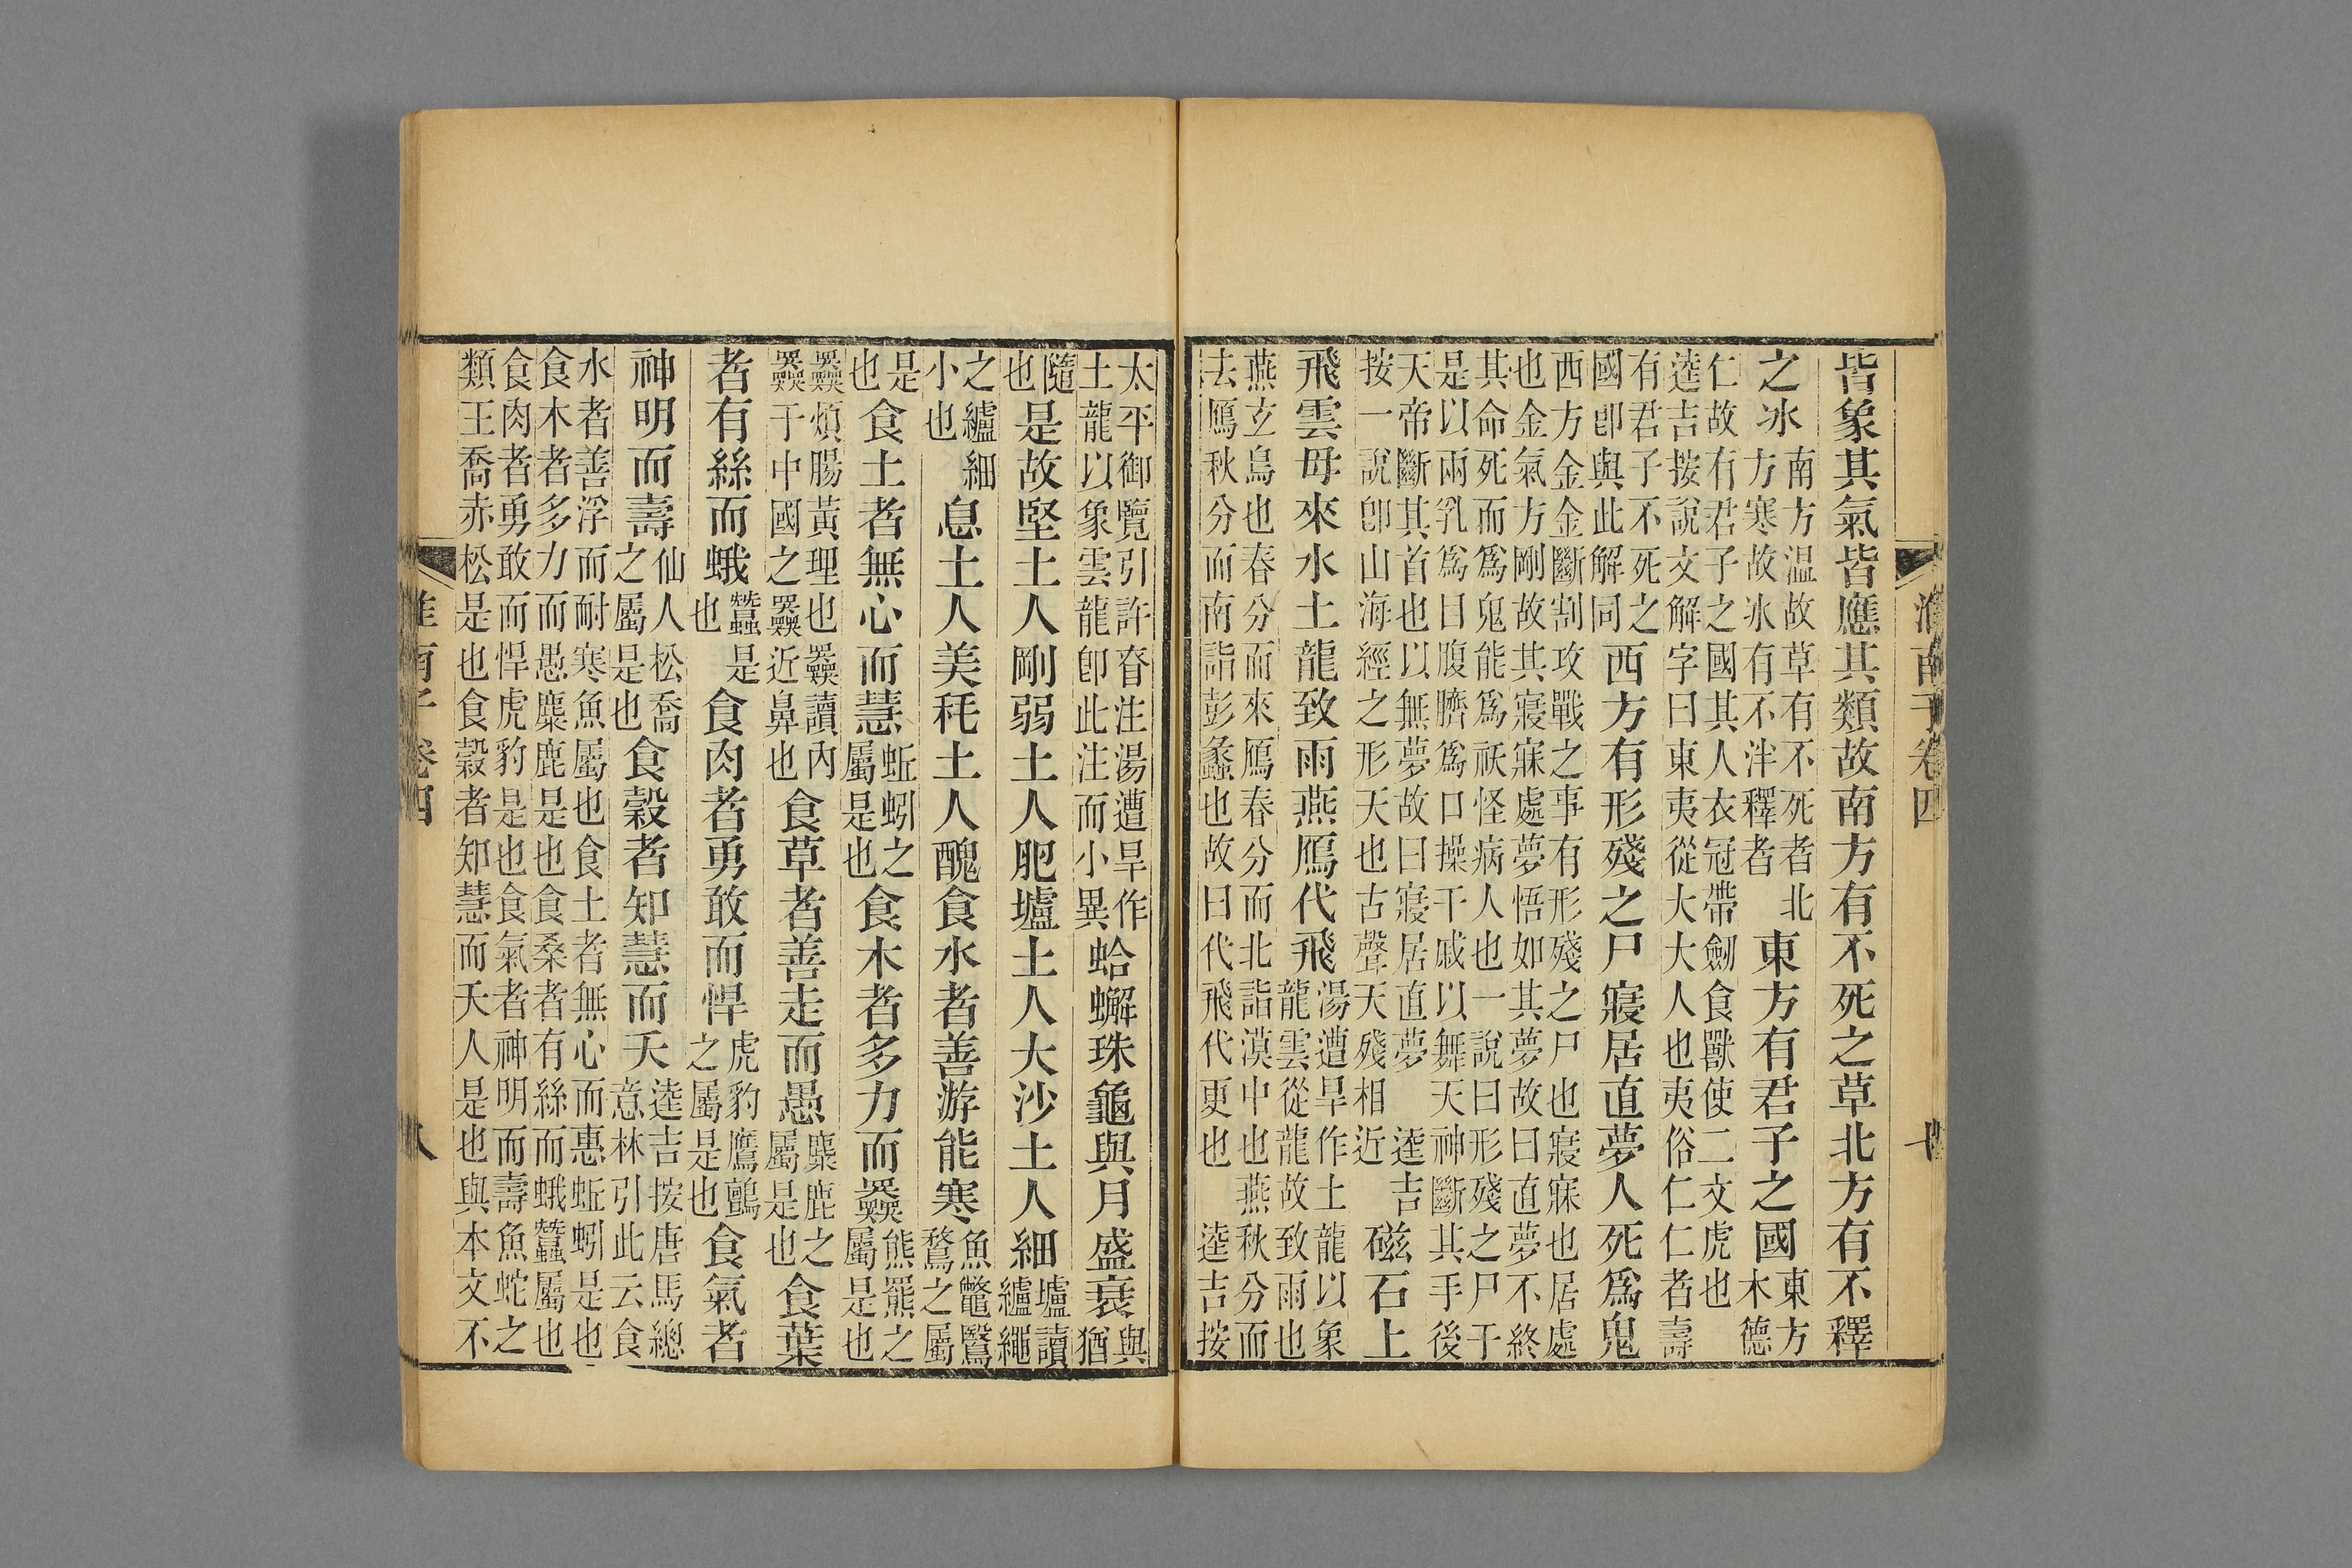 皆象其氣皆應其類故南方有不死之草北方有不釋
之冰南方温故草有不死者北方寒故冰有不泮釋者東方有君子之國東方木德
仁故有君子之國其人衣冠帶劒食獸使二文虎也逵吉按說文解字曰東夷從大大人也夷俗仁仁者壽
有君子不死之國卽與此解同西方有形殘之尸寢居直夢人死爲鬼
西方金金斷割攻戰之事有形殘之尸也寢寐也居處也金氣方剛故其寢寐處夢悟如其夢故曰直夢不終
其命死而爲鬼能爲祅怪病人也一說曰形殘之尸于是以兩乳爲目腹臍爲口操干戚以舞天神斷其手後
天帝斷其首也以無夢故曰寢居直夢逵吉按一說卽山海經之形天也古聲天殘相近磁石上
飛雲母來水土龍致雨燕鴈代飛湯遭旱作土龍以象龍雲從龍故致雨也
燕玄鳥也春分而來鴈春分而北詣漠中也燕秋分而去鴈秋分而南詣彭蠡也故曰代飛代更也逵吉按
淮南子卷四
太平御覽引許昚注湯遭旱作土龍以象雲龍卽此注而小異蛤蠏珠龜與月盛衰與猶
隨也是故堅土人剛弱土人肥壚土人大沙土人細壚讀纑繩
之纑細小也息土人美秏土人醜食水者善游能寒魚鼈鷖鶩之屬
是也食土者無心而慧蚯蚓之屬是也食木者多力而㚠熊羆之屬是也
㚠煩腸黃理也㚠讀內㚠于中國之㚠近鼻也食草者善走而愚麋鹿之屬是也食葉
者有絲而蛾蠶是也食肉者勇敢而悍虎豹鷹鸇之屬是也食氣者
神明而壽仙人松喬之屬是也食穀者知慧而夭逵吉按唐馬總意林引此云食
水者善浮而耐寒魚屬也食土者無心而惠蚯蚓是也食木者多力而愚麋鹿是也食桑者有絲而蛾蠶屬也
食肉者勇敢而悍虎豹是也食氣者神明而壽魚蛇之類王喬赤松是也食穀者知慧而夭人是也與本文不
淮南子 卷四